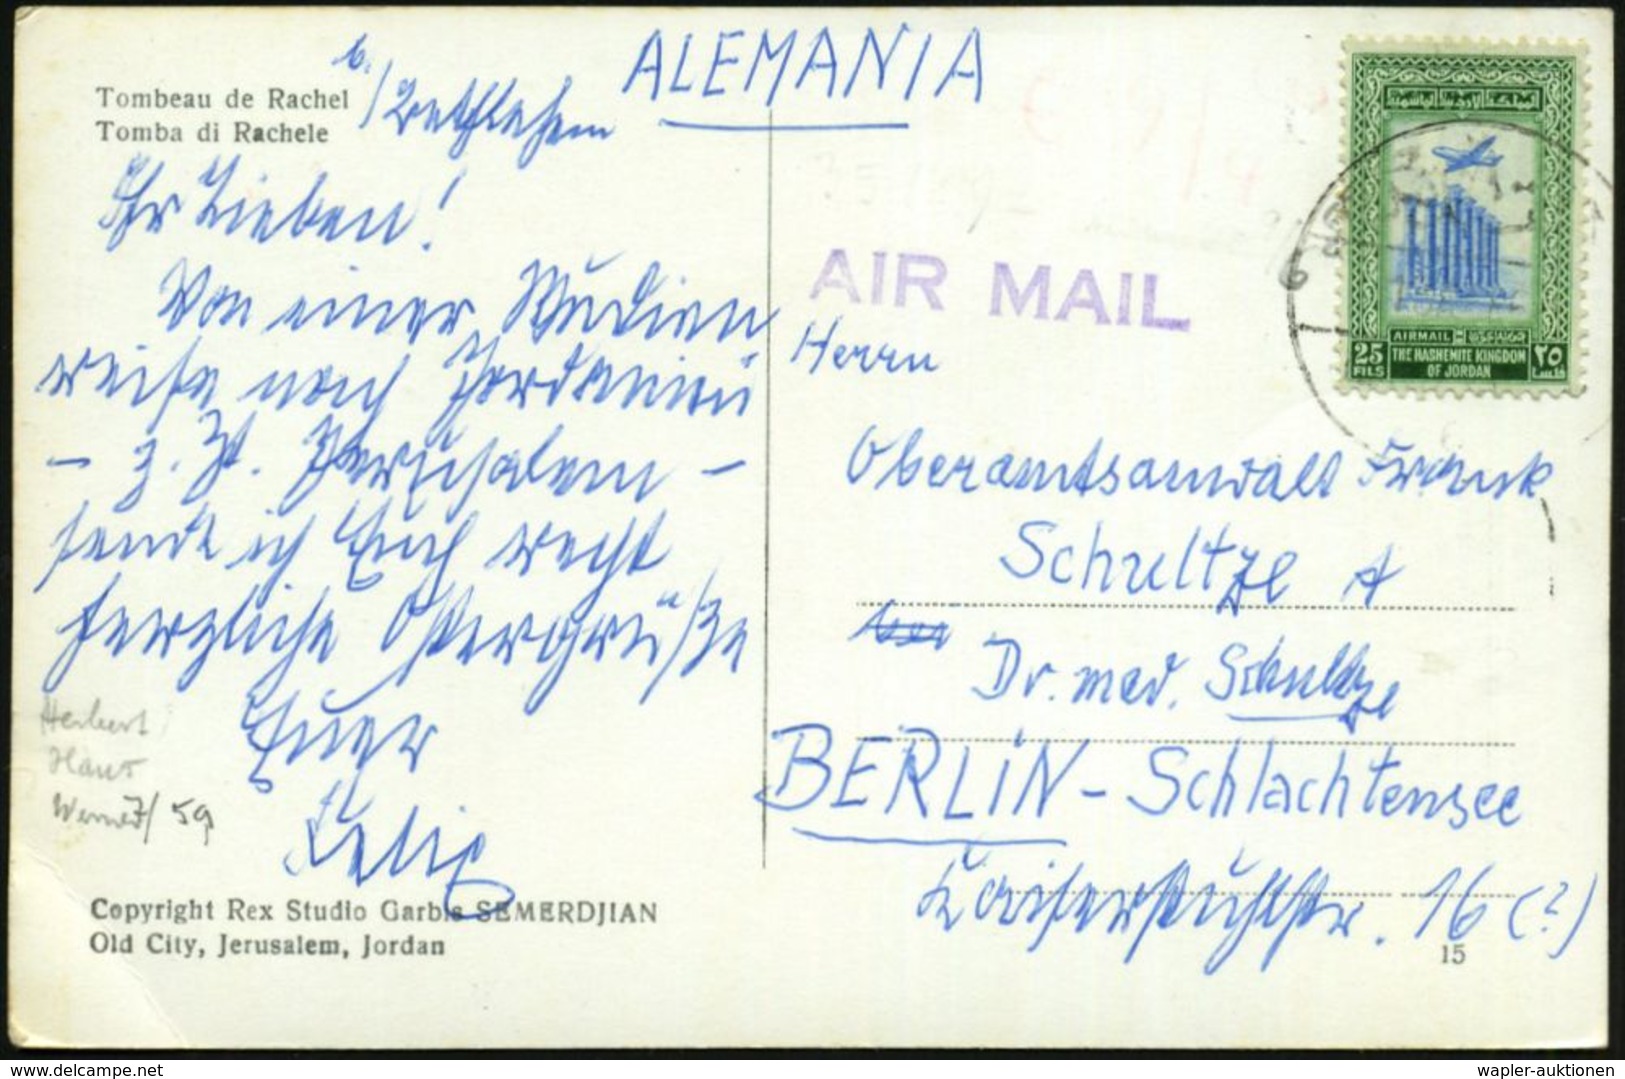 Tombeau de Rachel
Tomba di Rachele
b./Bethlehem
Ihr Lieben!
Von einer Studien
reise nach Jordanien
- z. Zt. Jerusalem -
sende ich Euch recht
herzliche Ostergrüße
Euer
Felix
Herbert
Hans
Werner / 59
Copyright Rex Studio Garbis SEMERDJIAN
Old City, Jerusalem, Jordan
ALEMANIA
AIR MAIL
AIRMAIL
25 FILS
THE HASHEMITE KINGDOM
OF JORDAN
٢٥
Herrn
Oberamtsanwalt Frank
Schultze
Dr. med. Schultze
BERLIN - Schlachtensee
Kaiserstuhlstr. 16 (?)
15
wapler-auktionen